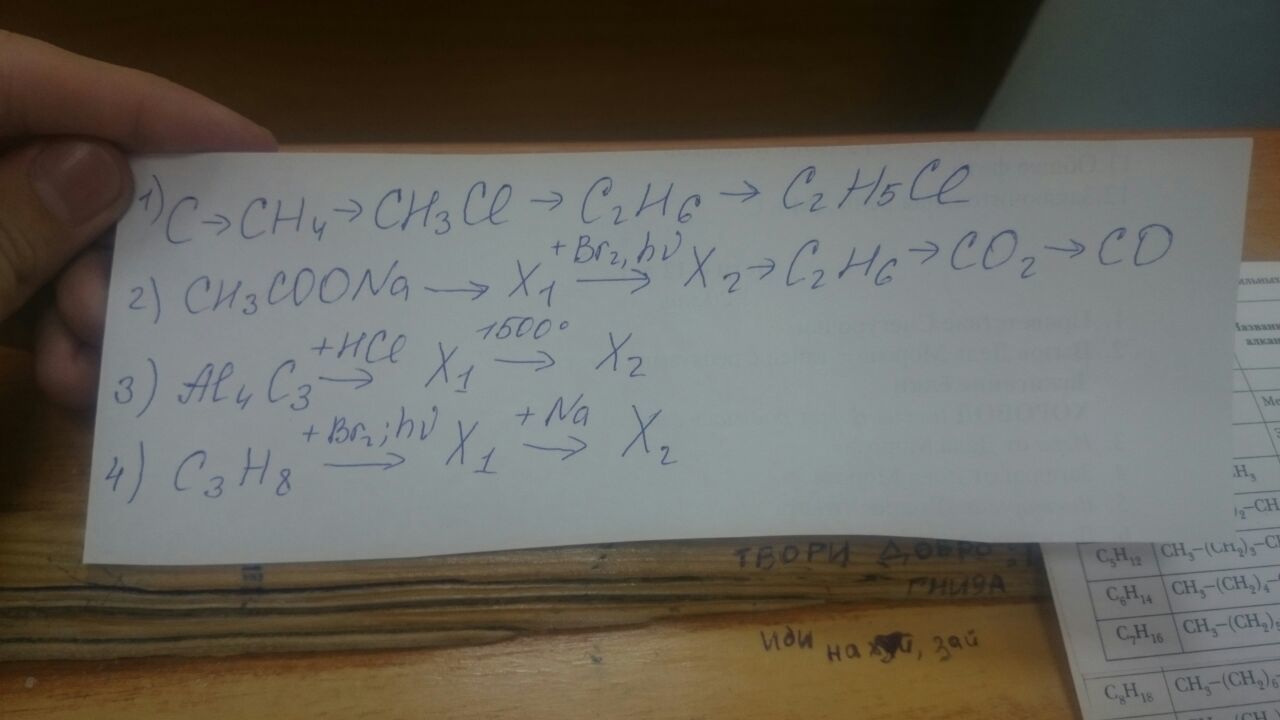 1) C → CH₄ → CH₃Cl → C₂H₆ → C₂H₅Cl
2) CH₃COONa → X₁ +Br₂, hν → X₂ → C₂H₆ → CO₂ → CO
3) Al₄C₃ +HCl → X₁ 1500° → X₂
4) C₃H₈ +Br₂; hν → X₁ +Na → X₂
ТВОРИ ДОБРО
ГНИДА
иди нахуй, зай
C₅H₁₂ CH₃–(CH₂)₃–C
C₆H₁₄ CH₃–(CH₂)₄–
C₇H₁₆ CH₃–(CH₂)₅
C₈H₁₈ CH₃–(CH₂)₆